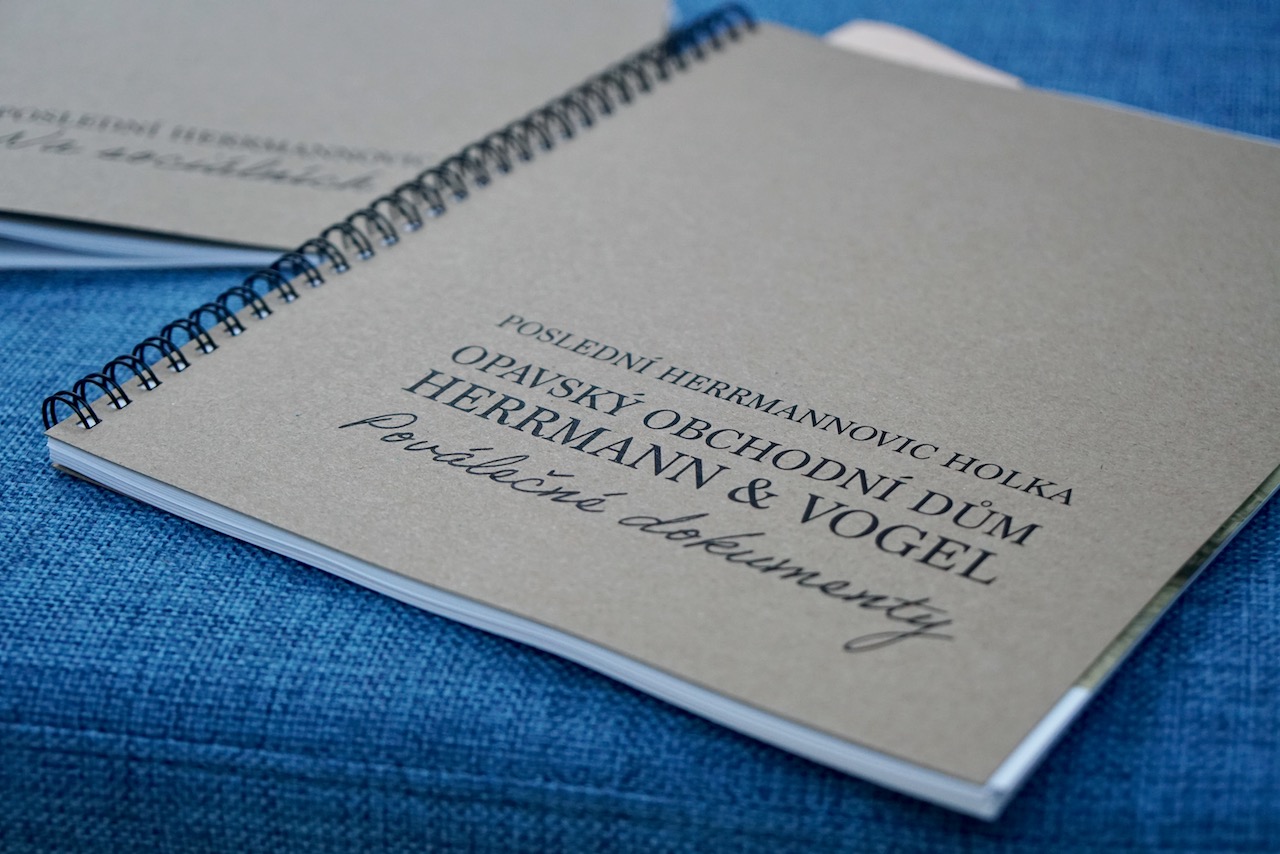 POSLEDNÍ HERRMANNOVIC
Na sociálních
POSLEDNÍ HERRMANNOVIC HOLKA
OPAVSKÝ OBCHODNÍ DŮM
HERRMANN & VOGEL
Poválečné dokumenty